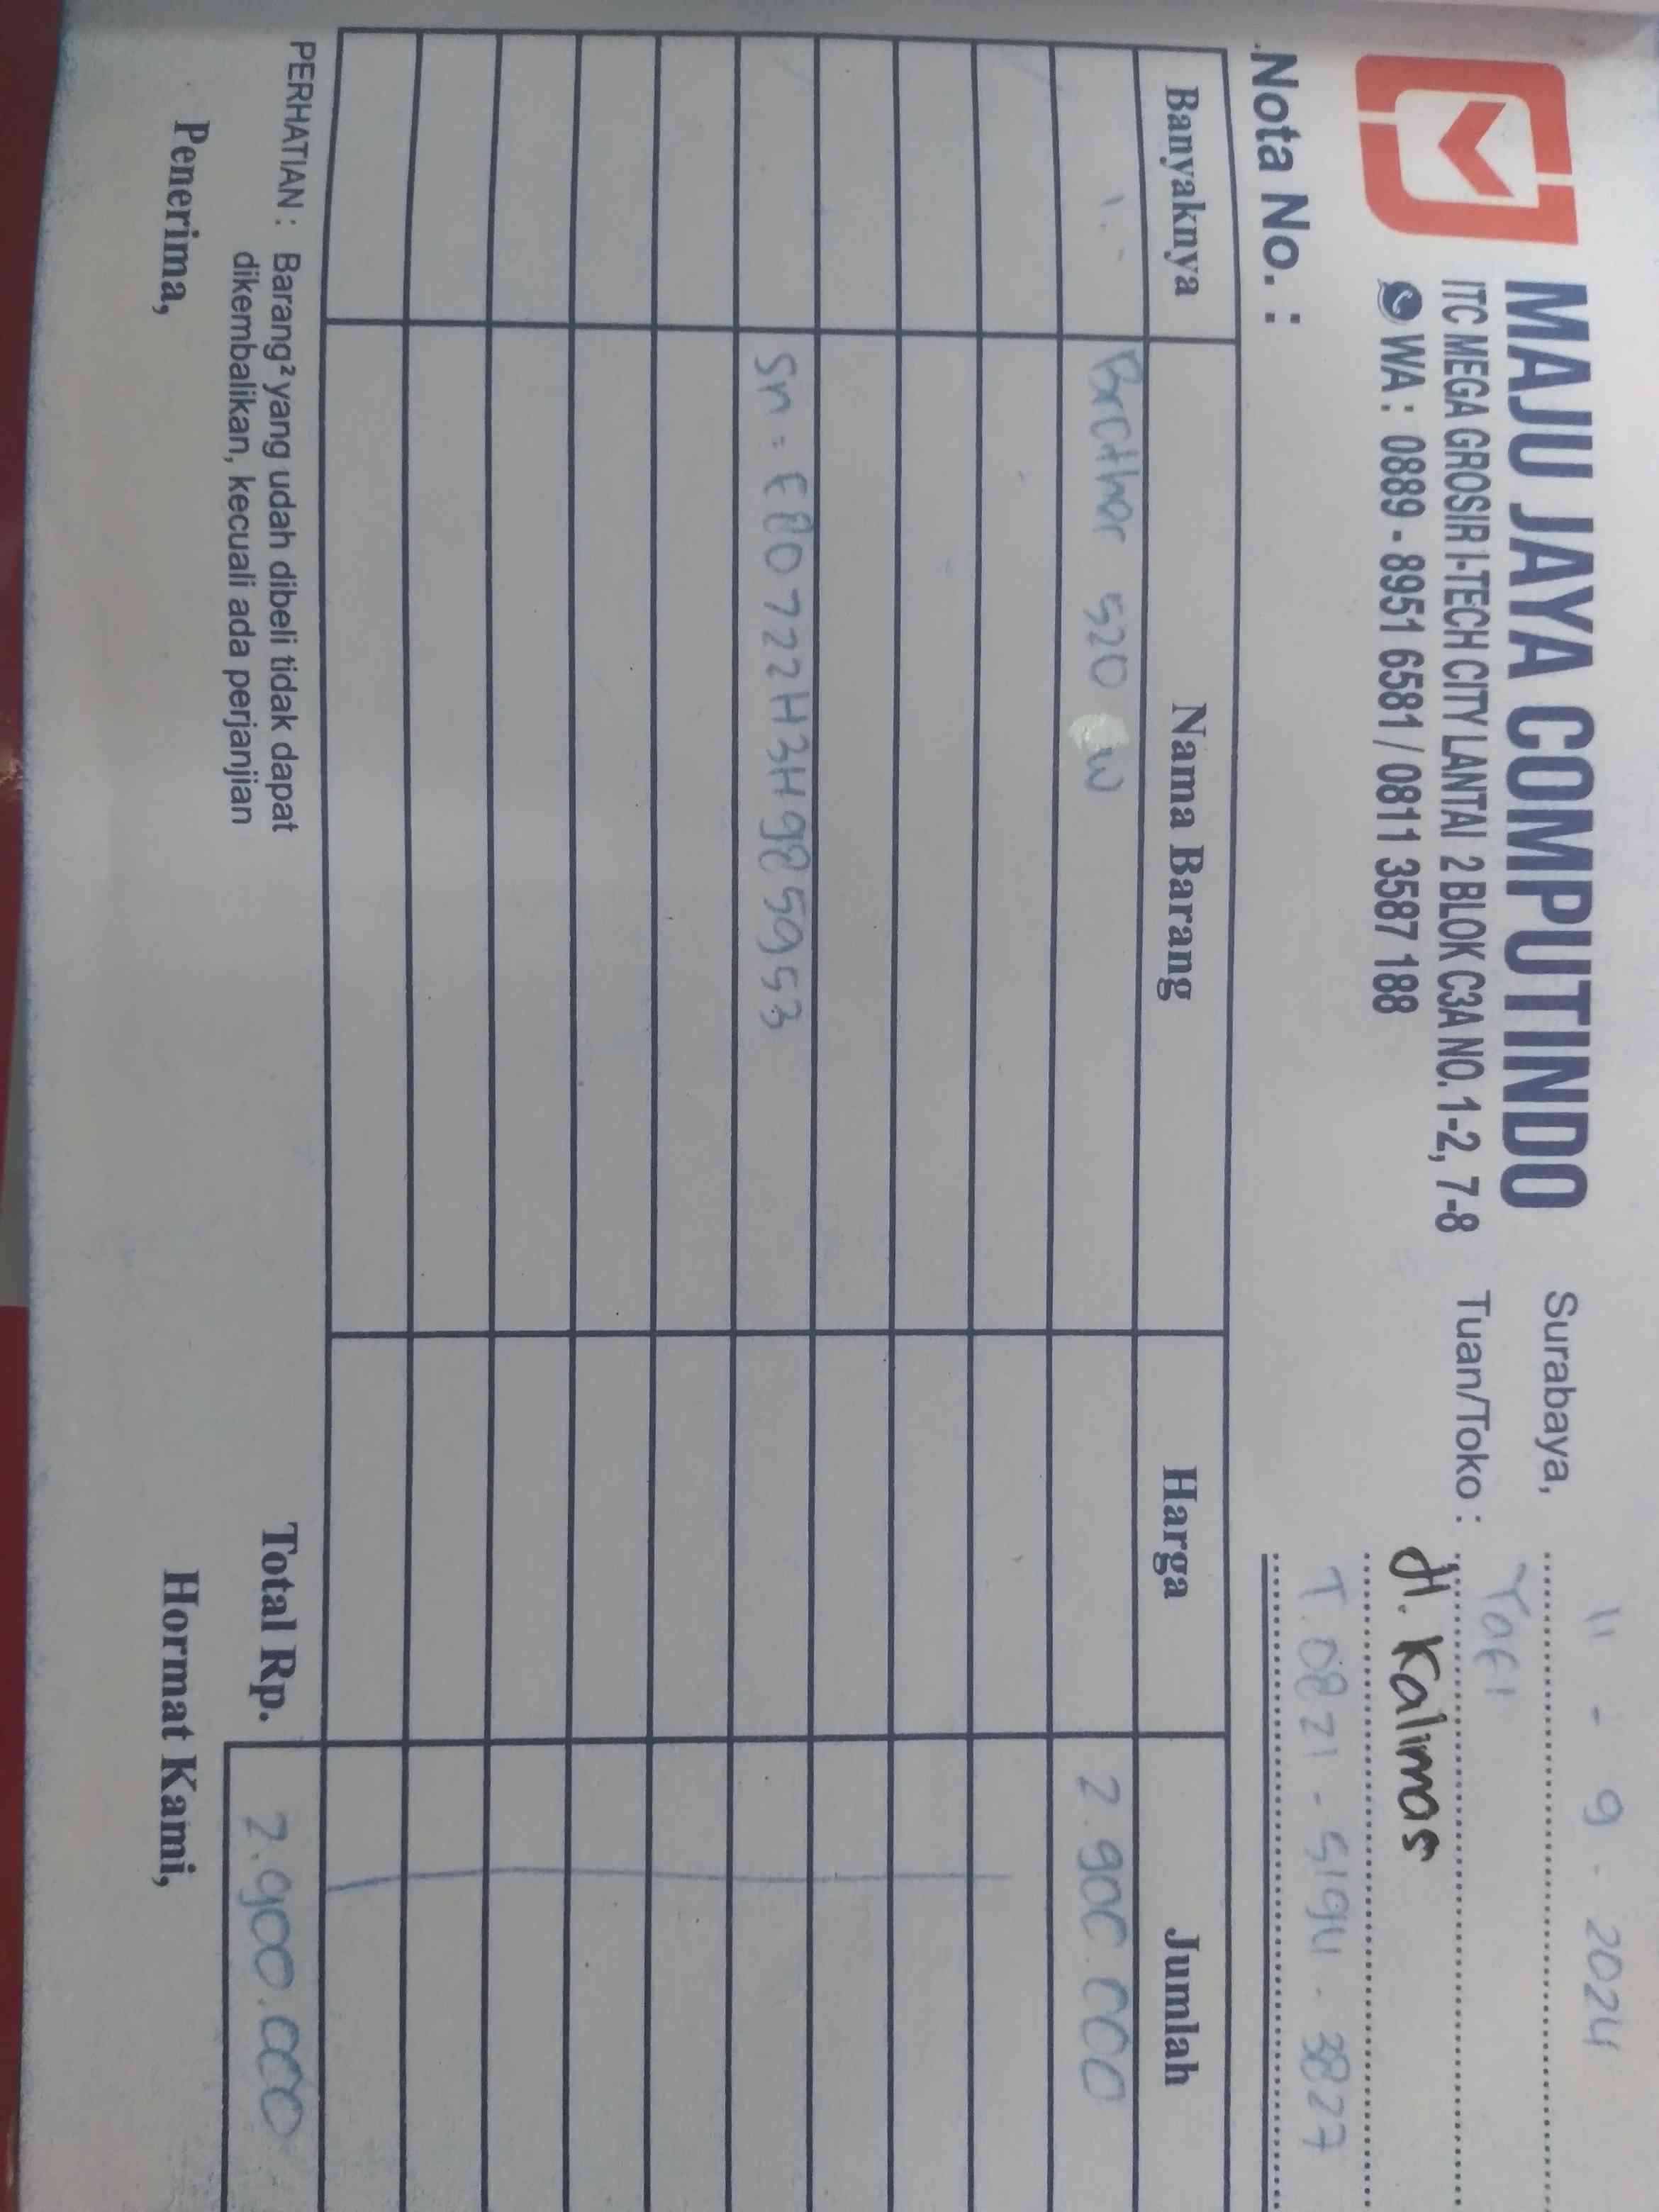 MAJU JAYA COMPUTINDO
ITC MEGA GROSIR I-TECH CITY LANTAI 2 BLOK C3A NO. 1-2, 7-8
WA : 0889 - 8951 6581 / 0811 3587 188
Surabaya, 11 - 9 - 2024
Tuan/Toko : Yafi
Jl. Kalimas
T. 0821 - 5194 - 3827
Nota No. :
Banyaknya Nama Barang Harga Jumlah
1 Brother 520 W 2.900.000
Sn : E80722H3H985953
PERHATIAN : Barang² yang udah dibeli tidak dapat
dikembalikan, kecuali ada perjanjian
Total Rp. 2.900.000
Penerima, Hormat Kami,